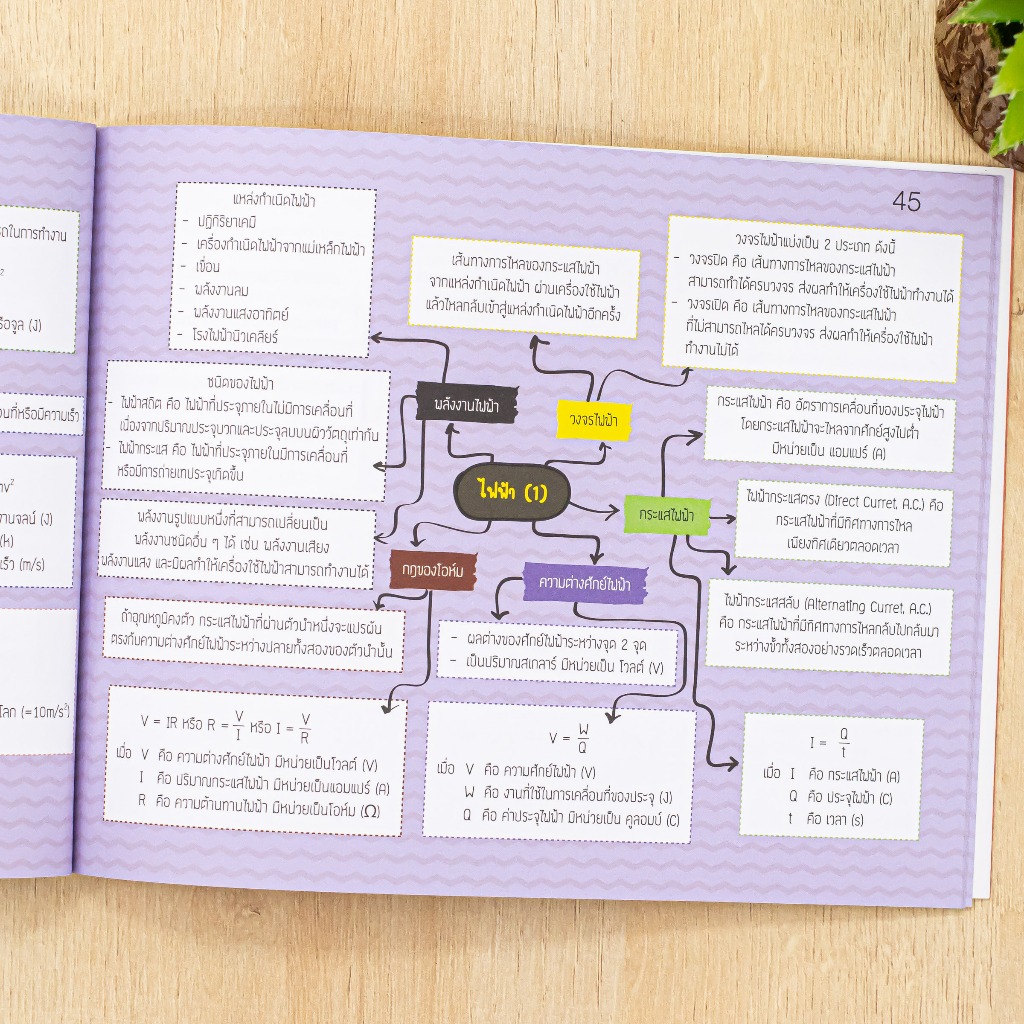 รถในการทำงาน
รือจูล (J)
อนที่หรือมีความเร็ว
mv²
งานจลน์ (J)
(k)
เร็ว (m/s)
โลก (=10m/s²)
45
แหล่งกำเนิดไฟฟ้า
- ปฏิกิริยาเคมี
- เครื่องกำเนิดไฟฟ้าจากแม่เหล็กไฟฟ้า
- เขื่อน
- พลังงานลม
- พลังงานแสงอาทิตย์
- โรงไฟฟ้านิวเคลียร์
เส้นทางการไหลของกระแสไฟฟ้า
จากแหล่งกำเนิดไฟฟ้า ผ่านเครื่องใช้ไฟฟ้า
แล้วไหลกลับเข้าสู่แหล่งกำเนิดไฟฟ้าอีกครั้ง
วงจรไฟฟ้าแบ่งเป็น 2 ประเภท ดังนี้
- วงจรปิด คือ เส้นทางการไหลของกระแสไฟฟ้า
สามารถทำได้ครบวงจร ส่งผลทำให้เครื่องใช้ไฟฟ้าทำงานได้
- วงจรเปิด คือ เส้นทางการไหลของกระแสไฟฟ้า
ที่ไม่สามารถไหลได้ครบวงจร ส่งผลทำให้เครื่องใช้ไฟฟ้า
ทำงานไม่ได้
ชนิดของไฟฟ้า
- ไฟฟ้าสถิต คือ ไฟฟ้าที่ประจุภายในไม่มีการเคลื่อนที่
เนื่องจากปริมาณประจุบวกและประจุลบบนผิววัตถุเท่ากัน
- ไฟฟ้ากระแส คือ ไฟฟ้าที่ประจุภายในมีการเคลื่อนที่
หรือมีการถ่ายเทประจุเกิดขึ้น
พลังงานไฟฟ้า
วงจรไฟฟ้า
กระแสไฟฟ้า คือ อัตราการเคลื่อนที่ของประจุไฟฟ้า
โดยกระแสไฟฟ้าจะไหลจากศักย์สูงไปต่ำ
มีหน่วยเป็น แอมแปร์ (A)
ไฟฟ้า (1)
กระแสไฟฟ้า
ไฟฟ้ากระแสตรง (Direct Curret, A.C.) คือ
กระแสไฟฟ้าที่มีทิศทางการไหล
เพียงทิศเดียวตลอดเวลา
พลังงานรูปแบบหนึ่งที่สามารถเปลี่ยนเป็น
พลังงานชนิดอื่น ๆ ได้ เช่น พลังงานเสียง
พลังงานแสง และมีผลทำให้เครื่องใช้ไฟฟ้าสามารถทำงานได้
กฎของโอห์ม
ความต่างศักย์ไฟฟ้า
ไฟฟ้ากระแสสลับ (Alternating Curret, A.C.)
คือ กระแสไฟฟ้าที่มีทิศทางการไหลกลับไปกลับมา
ระหว่างขั้วทั้งสองอย่างรวดเร็วตลอดเวลา
ถ้าอุณหภูมิคงตัว กระแสไฟฟ้าที่ผ่านตัวนำหนึ่งจะแปรผัน
ตรงกับความต่างศักย์ไฟฟ้าระหว่างปลายทั้งสองของตัวนำนั้น
- ผลต่างของศักย์ไฟฟ้าระหว่างจุด 2 จุด
- เป็นปริมาณสเกลาร์ มีหน่วยเป็น โวลต์ (V)
V = IR หรือ R = V/I หรือ I = V/R
เมื่อ V คือ ความต่างศักย์ไฟฟ้า มีหน่วยเป็นโวลต์ (V)
I คือ ปริมาณกระแสไฟฟ้า มีหน่วยเป็นแอมแปร์ (A)
R คือ ความต้านทานไฟฟ้า มีหน่วยเป็นโอห์ม (Ω)
V = W/Q
เมื่อ V คือ ความศักย์ไฟฟ้า (V)
W คือ งานที่ใช้ในการเคลื่อนที่ของประจุ (J)
Q คือ ค่าประจุไฟฟ้า มีหน่วยเป็น คูลอมบ์ (C)
I = Q/t
เมื่อ I คือ กระแสไฟฟ้า (A)
Q คือ ประจุไฟฟ้า (C)
t คือ เวลา (s)